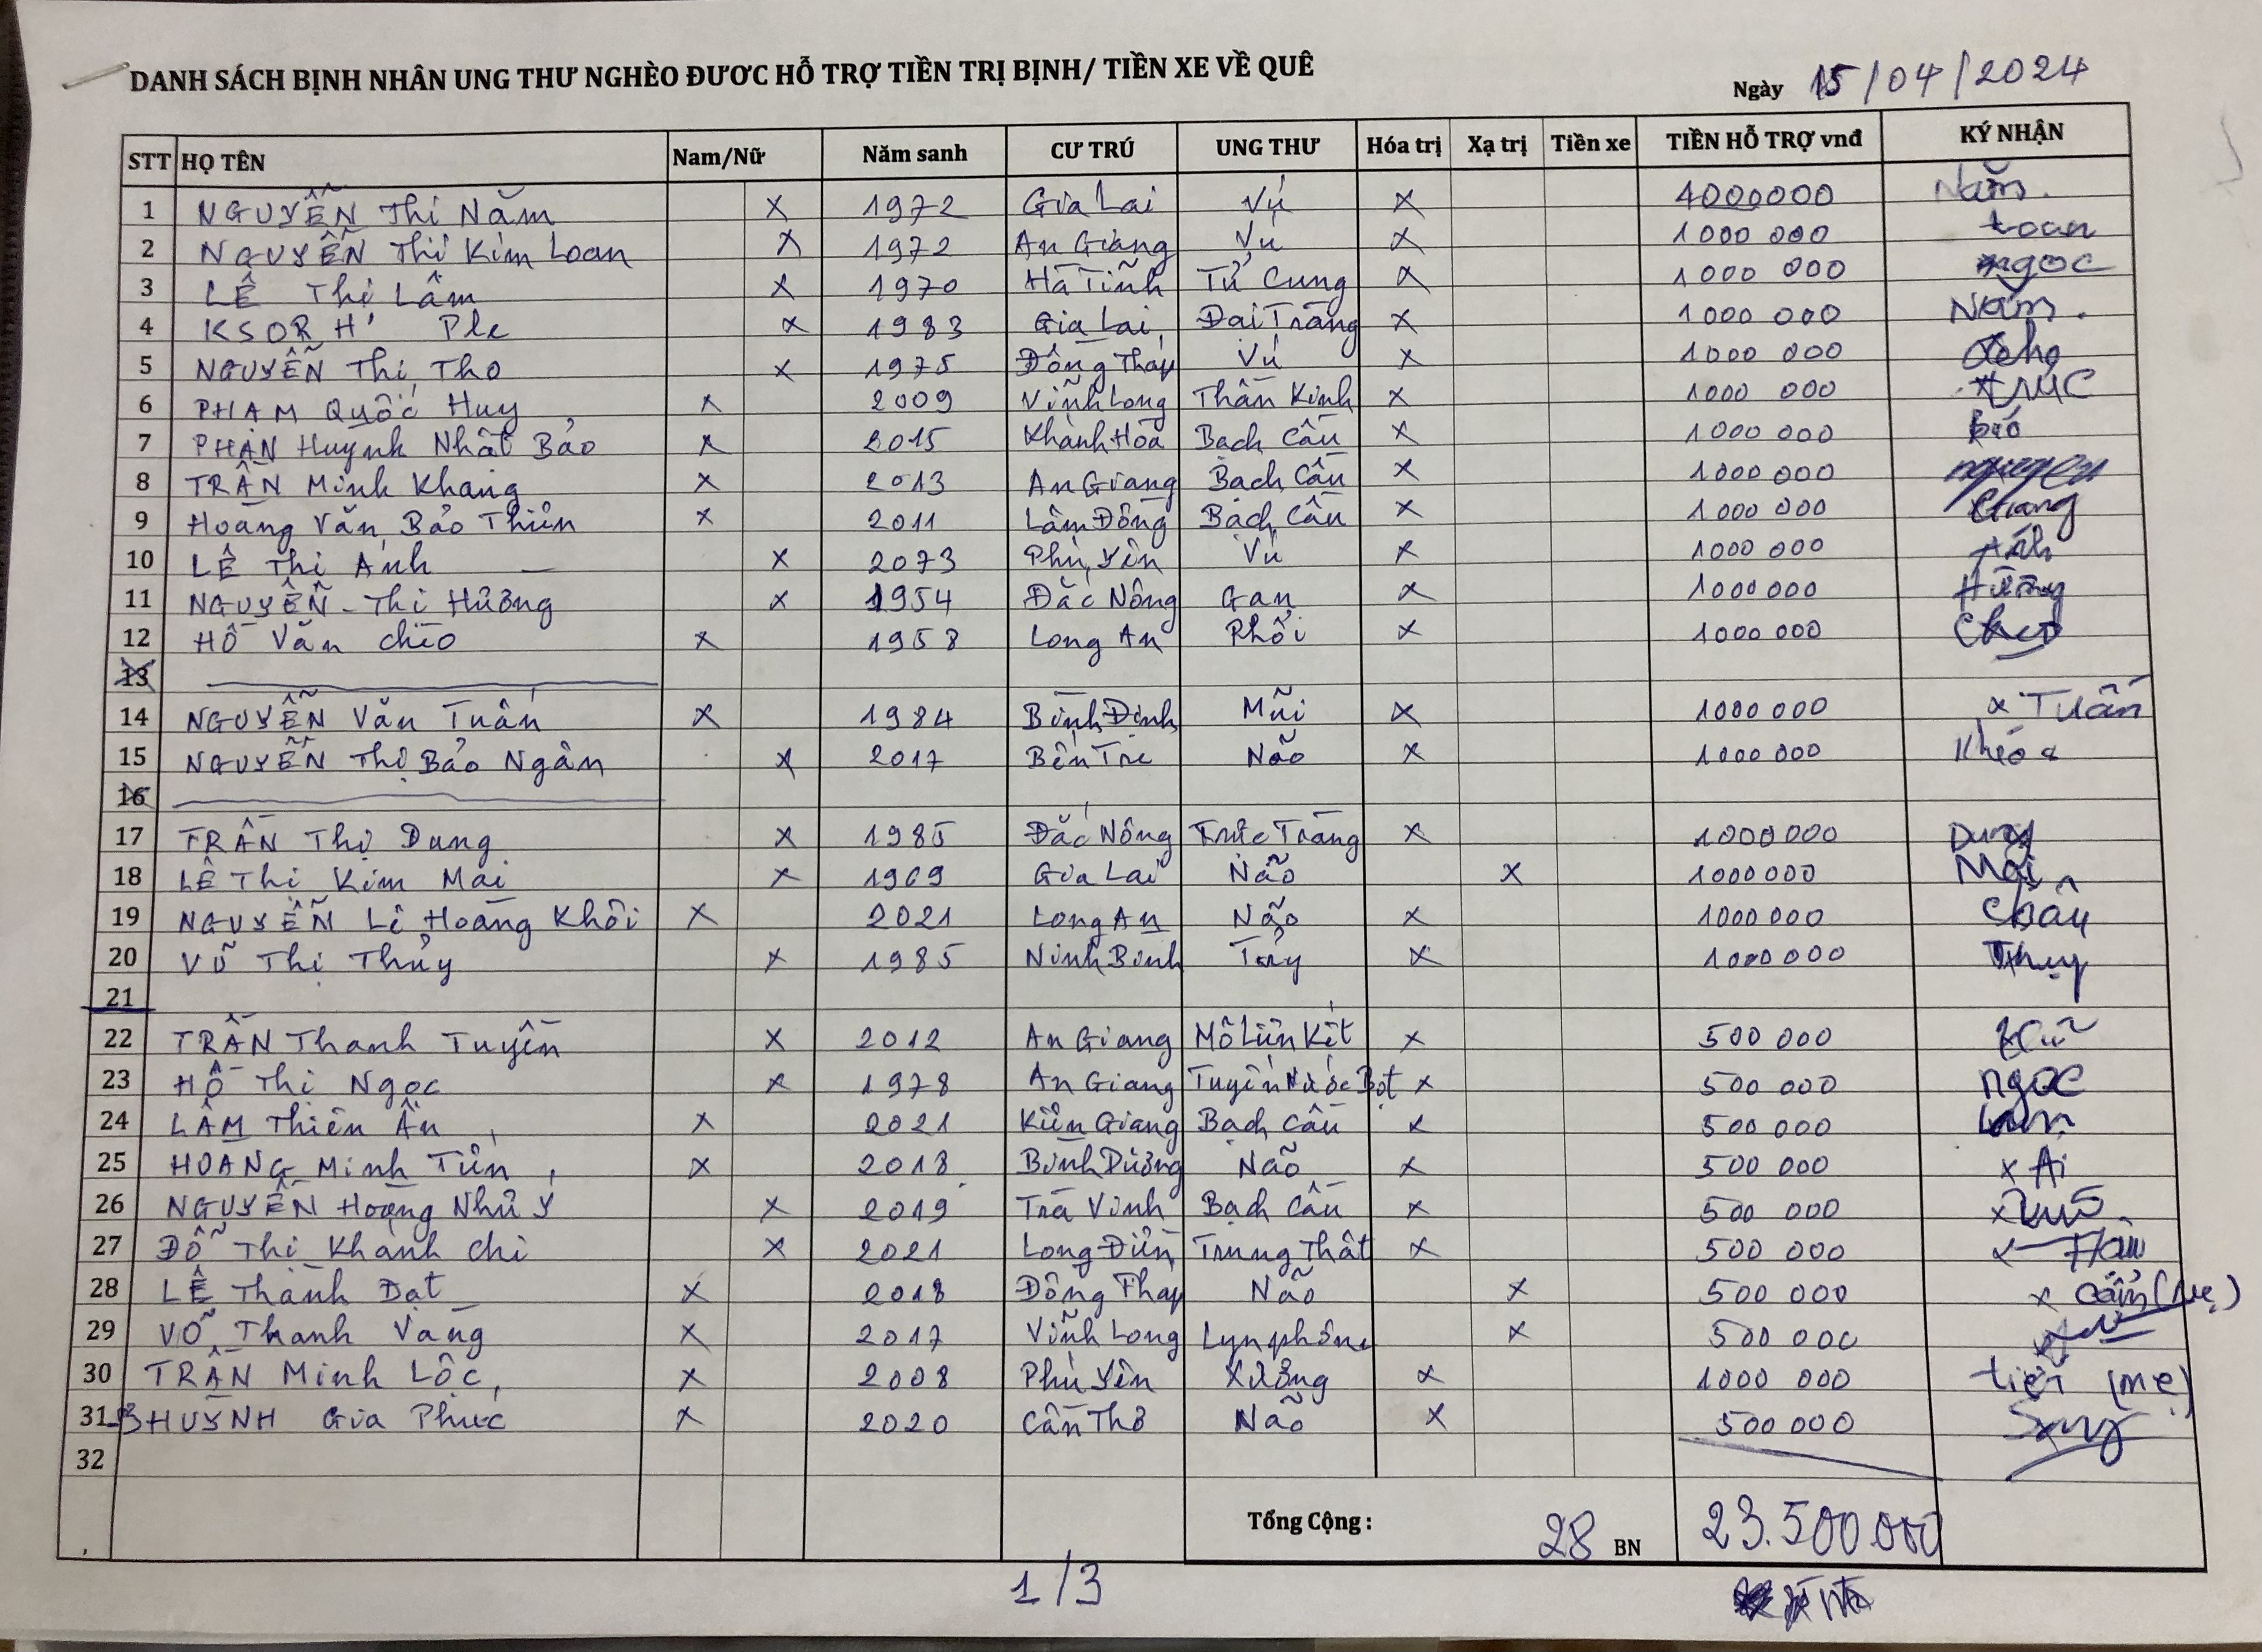 DANH SÁCH BỊNH NHÂN UNG THƯ NGHÈO ĐƯƠC HỖ TRỢ TIỀN TRỊ BỊNH/ TIỀN XE VỀ QUÊ
Ngày 15/04/2024
STT HỌ TÊN Nam/Nữ Năm sanh CƯ TRÚ UNG THƯ Hóa trị Xạ trị Tiền xe TIỀN HỖ TRỢ vnđ KÝ NHẬN
1 NGUYỄN Thị Năm x 1972 Gia Lai Vú x 4000000 Năm.
2 NGUYỄN Thị Kim Loan x 1972 An Giang Vú x 1000 000 Loan
3 LÊ Thị Lâm x 1970 Hà Tĩnh Tử Cung x 1000 000 ngoc
4 KSOR H' Ple x 1983 Gia Lai Đại Tràng x 1000 000 Năm.
5 NGUYỄN Thị Tho x 1975 Đồng Tháp Vú x 1000 000
6 PHẠM Quốc Huy x 2009 Vĩnh Long Thần Kinh x 1000 000 TRÚC
7 PHAN Huỳnh Nhật Bảo x 2015 Khánh Hòa Bạch Cầu x 1000 000 Bảo
8 TRẦN Minh Khang x 2013 An Giang Bạch Cầu x 1000 000
9 Hoàng Văn Bảo Thiên x 2011 Lâm Đồng Bạch Cầu x 1000 000 Giang
10 LÊ Thị Ánh x 2073 Phú Yên Vú x 1000 000 Ánh
11 NGUYỄN - Thị Hường x 1954 Đắc Nông Gan x 1000 000 Hường
12 HỒ Văn chẽo x 1958 Long An Phổi x 1000 000
13
14 NGUYỄN Văn Tuấn x 1984 Bình Định Mũi x 1000 000 x Tuấn
15 NGUYỄN Thị Bảo Ngân x 2017 Bến Tre Não x 1000 000
16
17 TRẦN Thị Dung x 1985 Đắc Nông Trực Tràng x 1000000 Dung
18 LÊ Thị Kim Mai x 1969 Gia Lai Não x 1000000 Mai
19 NGUYỄN Lê Hoàng Khôi x 2021 Long An Não x 1000 000 Châu
20 VŨ Thị Thủy x 1985 Ninh Bình Tủy x 1000 000 Thủy
21
22 TRẦN Thanh Tuyền x 2012 An Giang Mô Liên Kết x 500 000
23 HỒ Thị Ngọc x 1978 An Giang Tuyến Nước Bọt x 500 000 ngọc
24 LÂM Thiên Ân x 2021 Kiên Giang Bạch Cầu x 500 000 Lam
25 HOÀNG Minh Tiến x 2018 Bình Dương Não x 500 000 x Ái
26 NGUYỄN Hoàng Như Ý x 2019 Trà Vinh Bạch Cầu x 500 000 x
27 ĐỖ Thị Khánh chi x 2021 Long Điền Trung Thất x 500 000 x
28 LÊ Thành Đạt x 2018 Đồng Tháp Não x 500 000 x Cẩm (mẹ)
29 VÕ Thanh Vàng x 2017 Vĩnh Long Lymphôme x 500 000
30 TRẦN Minh Lộc x 2008 Phú Yên Xương x 1000 000 tiết (mẹ)
31 HUỲNH Gia Phúc x 2020 Cần Thơ Não x 500 000
32
Tổng Cộng : 28 BN 23.500.000
1/3